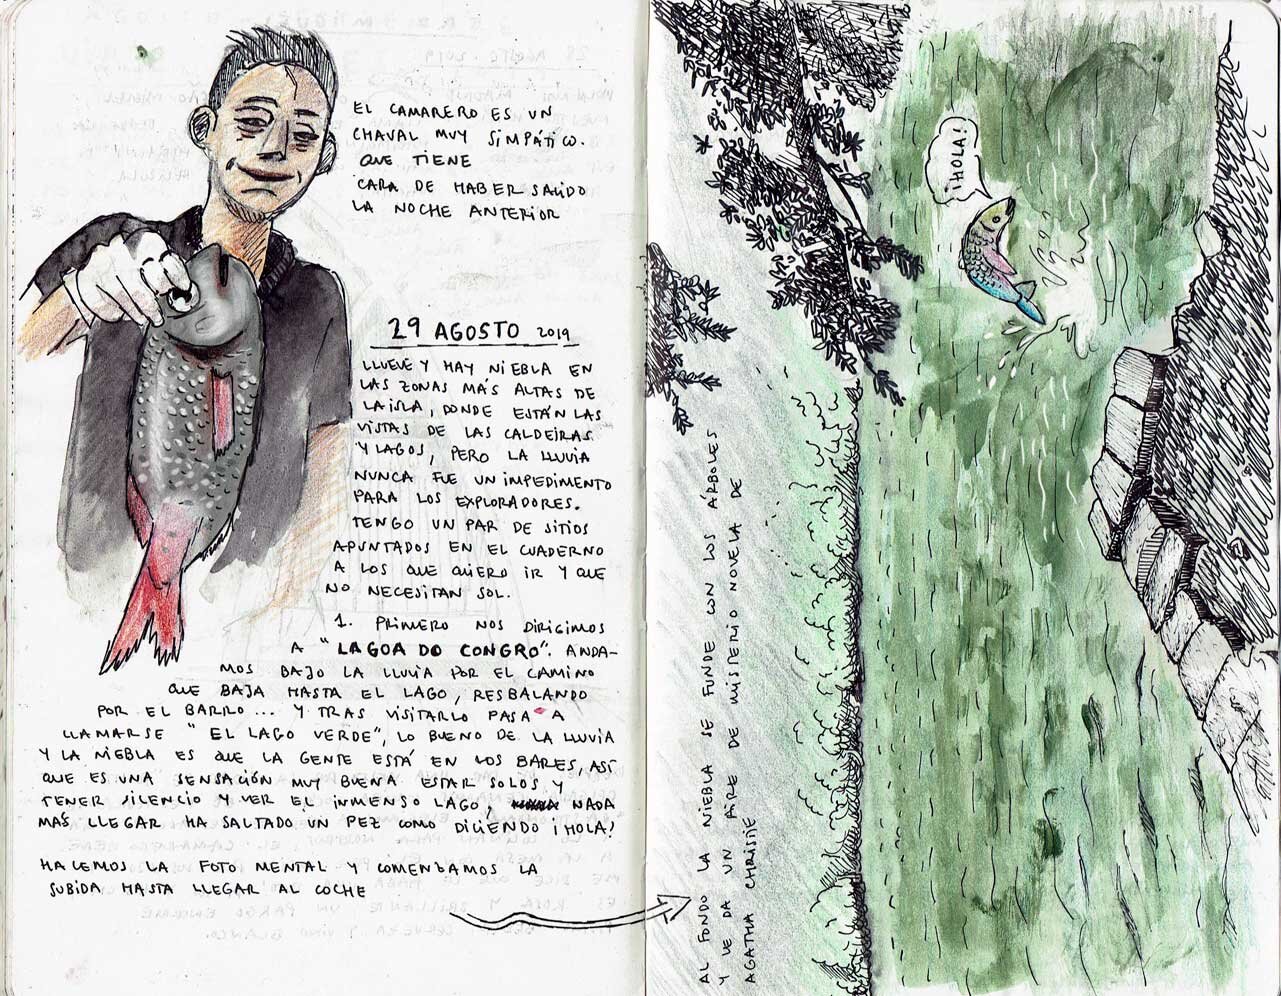 EL CAMARERO ES UN
CHAVAL MUY SIMPÁTICO.
QUE TIENE
CARA DE HABER SALIDO
LA NOCHE ANTERIOR
29 AGOSTO 2019
LLUEVE Y HAY NIEBLA EN
LAS ZONAS MÁS ALTAS DE
LA ISLA, DONDE ESTÁN LAS
VISTAS DE LAS CALDEIRAS
Y LAGOS, PERO LA LLUVIA
NUNCA FUE UN IMPEDIMENTO
PARA LOS EXPLORADORES.
TENGO UN PAR DE SITIOS
APUNTADOS EN EL CUADERNO
A LOS QUE QUIERO IR Y QUE
NO NECESITAN SOL.
1. PRIMERO NOS DIRIGIMOS
A "LAGOA DO CONGRO". ANDA-
MOS BAJO LA LLUVIA POR EL CAMINO
QUE BAJA HASTA EL LAGO, RESBALANDO
POR EL BARRO... Y TRAS VISITARLO PASA A
LLAMARSE "EL LAGO VERDE", LO BUENO DE LA LLUVIA
Y LA NIEBLA ES QUE LA GENTE ESTÁ EN LOS BARES, ASÍ
QUE ES UNA SENSACIÓN MUY BUENA ESTAR SOLOS Y
TENER SILENCIO Y VER EL INMENSO LAGO, NADA
MÁS LLEGAR HA SALTADO UN PEZ COMO DICIENDO ¡HOLA!
HACEMOS LA FOTO MENTAL Y COMENZAMOS LA
SUBIDA HASTA LLEGAR AL COCHE
AL FONDO LA NIEBLA SE FUNDE CON LOS ÁRBOLES
Y LE DA UN AIRE DE MISTERIO NOVELA DE
AGATHA CHRISTIE
¡HOLA!